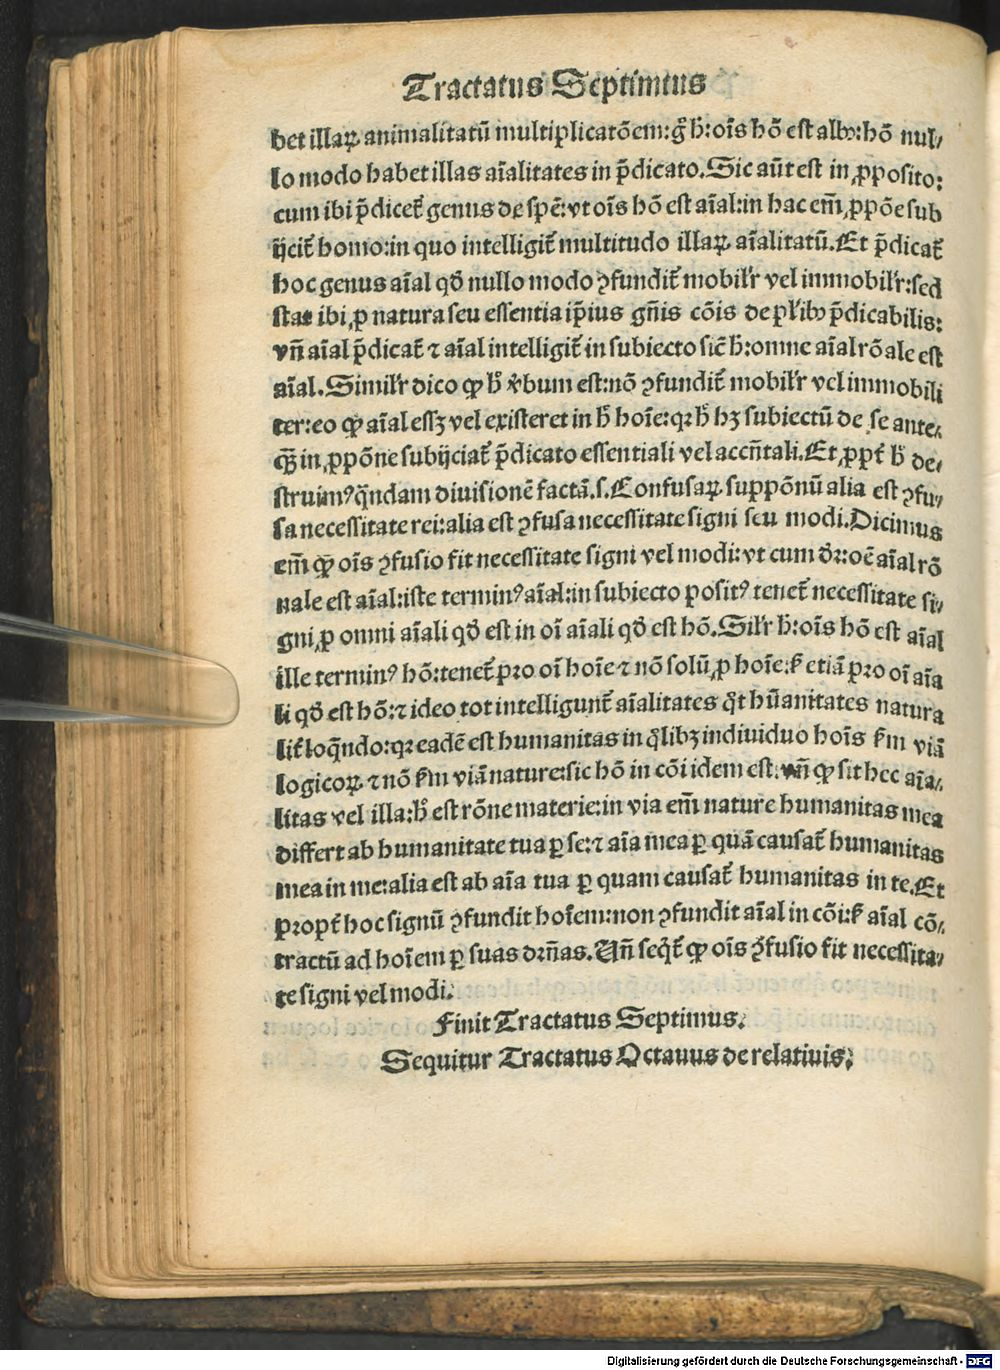 Tractatus Septimus
bet illaꝝ animalitatū multiplicatōem: gͦ h̄: oīs hō est albꝰ: hō nul⸗
lo modo habet illas aīalitates in p̄dicato. Sic aūt est in ꝓposito:
cum ibi p̄dicet᷑ genus de spē: vt oīs hō est aīal: in hac em̄ ꝓpōe sub
ijcit᷑ homo: in quo intelligit᷑ multitudo illaꝝ aīalitatū. Et p̄dicat᷑
hoc genus aīal qd̓ nullo modo ꝯfundit᷑ mobilr̄ vel immobilr̄: sed
stat ibi ꝓ natura seu essentia ip̄ius gn̄is cōis de pl̓ibꝰ p̄dicabilis:
vn̄ aīal p̄dicat᷑ ⁊ aīal intelligit᷑ in subiecto sic̄ h̄: omne aīal rōale est
aīal. Similr̄ dico ꝙ h̄ v̓bum est: nō ꝯfundit᷑ mobilr̄ vel immobili
ter: eo ꝙ aīal essꝫ vel existeret in h̄ hoīe: qꝛ h̄ hꝫ subiectū de se ante⸗
q̄ȝ in ꝓpōne subijciat᷑ p̄dicato essentiali vel accn̄tali. Et ꝓpt̓ h̄ de⸗
struimꝰ q̄ndam diuisionē factā. s. Confusaꝝ suppōnū alia est ꝯfu⸗
sa necessitate rei: alia est ꝯfusa necessitate signi seu modi. Dicimus
em̄ ꝙ oīs ꝯfusio fit necessitate signi vel modi: vt cum dr̄: oē aīal rō
nale est aīal: iste terminꝰ aīal: in subiecto positꝰ tenet᷑ necessitate si⸗
gni ꝓ omni aīali qd̓ est in oī aīali qd̓ est hō. Silr̄ h̄: oīs hō est aīal
ille terminꝰ hō: tenet᷑ pro oī hoīe ⁊ nō solū ꝓ hoīe: sꝫ etiā pro oī aīa
li qd̓ est hō: ⁊ ideo tot intelligunt᷑ aīalitates qͦt hūanitates natura
lit̓ loq̄ndo: qꝛ eadē est humanitas in qͦlibꝫ indiuiduo hoīs ẜm viā
logicoꝝ ⁊ nō ẜm viā nature: sic hō in cōi idem est: vn̄ ꝙ sit hec aīa⸗
litas vel illa: h̄ est rōne materie: in via em̄ nature humanitas mea
differt ab humanitate tua ꝑ se: ⁊ aīa mea ꝑ quā causat᷑ humanitas
mea in me: alia est ab aīa tua ꝑ quam causat᷑ humanitas in te. Et
propt̓ hoc signū ꝯfundit hoīem: non ꝯfundit aīal in cōi: sꝫ aīal cō⸗
tractū ad hoīem ꝑ suas dr̄n̄as. Un̄ seq̄t᷑ ꝙ oīs ꝯfusio fit necessita⸗
te signi vel modi.
Finit Tractatus Septimus.
Sequitur Tractatus Octauus de relatiuis.
Digitalisierung gefördert durch die Deutsche Forschungsgemeinschaft - DFG